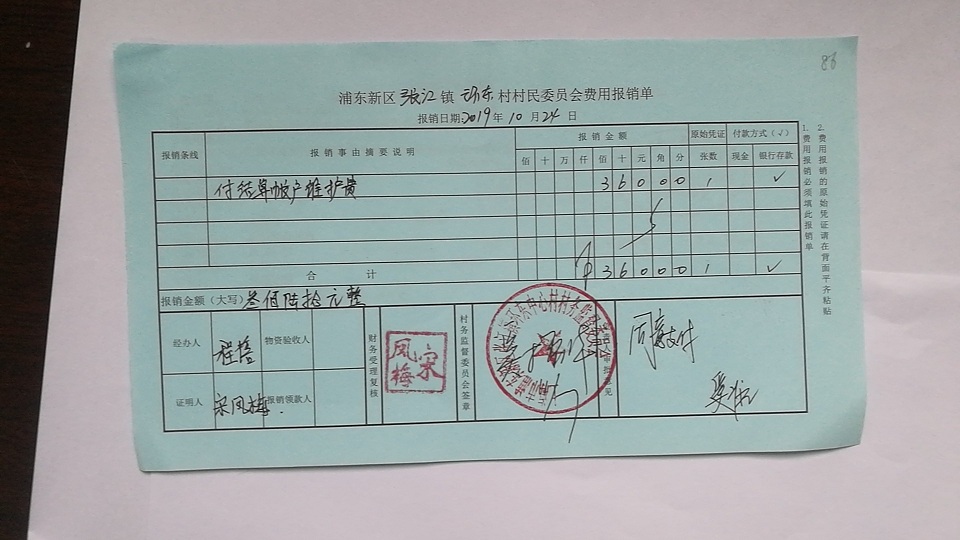 88
浦东新区张江镇环东村村民委员会费用报销单
报销日期:2019年10月24日
报销条线 报销事由摘要说明 报销金额 原始凭证 付款方式(√)
佰 十 万 仟 佰 十 元 角 分 张数 现金 银行存款
付结算帐户维护费 3 6 0 0 0 1 √
合计 ¥ 3 6 0 0 0 1 √
报销金额(大写)叁佰陆拾元整
经办人 物资验收人
证明人 宋凤梅 报销领款人
财务受理复核
宋凤梅
村务监督委员会签章
同意支付
1.费用报销必须填此报销单
2.费用报销的原始凭证请在背面平齐粘贴